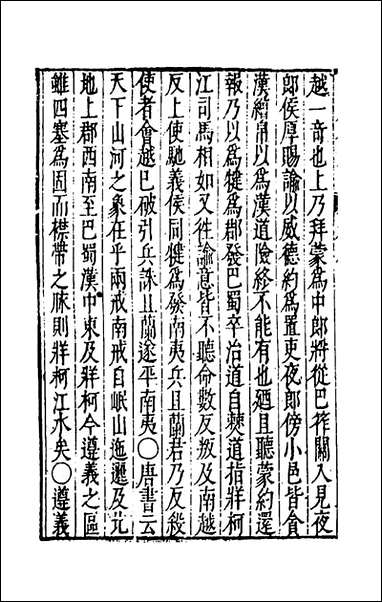 越一奇也上乃拜蒙為中郎將從巴筰關入見夜
郎侯厚賜諭以威德約為置吏夜郎傍小邑皆貪
漢繒帛以為漢道險終不能有也廼且聽蒙約還
報乃以為犍為郡發巴蜀卒治道自僰道指牂柯
江司馬相如又徃諭意皆不聽命數反叛及南越
反上使馳義侯同犍為發南夷兵且蘭君乃反殺
使者會越巳破引兵誅且蘭遂平南夷〇唐書云
天下山河之象在乎兩戒南戒自岷山迤邐及北
地上郡西南至巴蜀漢中東及牂柯今遵義之區
雖四塞為固而襟帶之脉則牂柯江水矣〇遵義